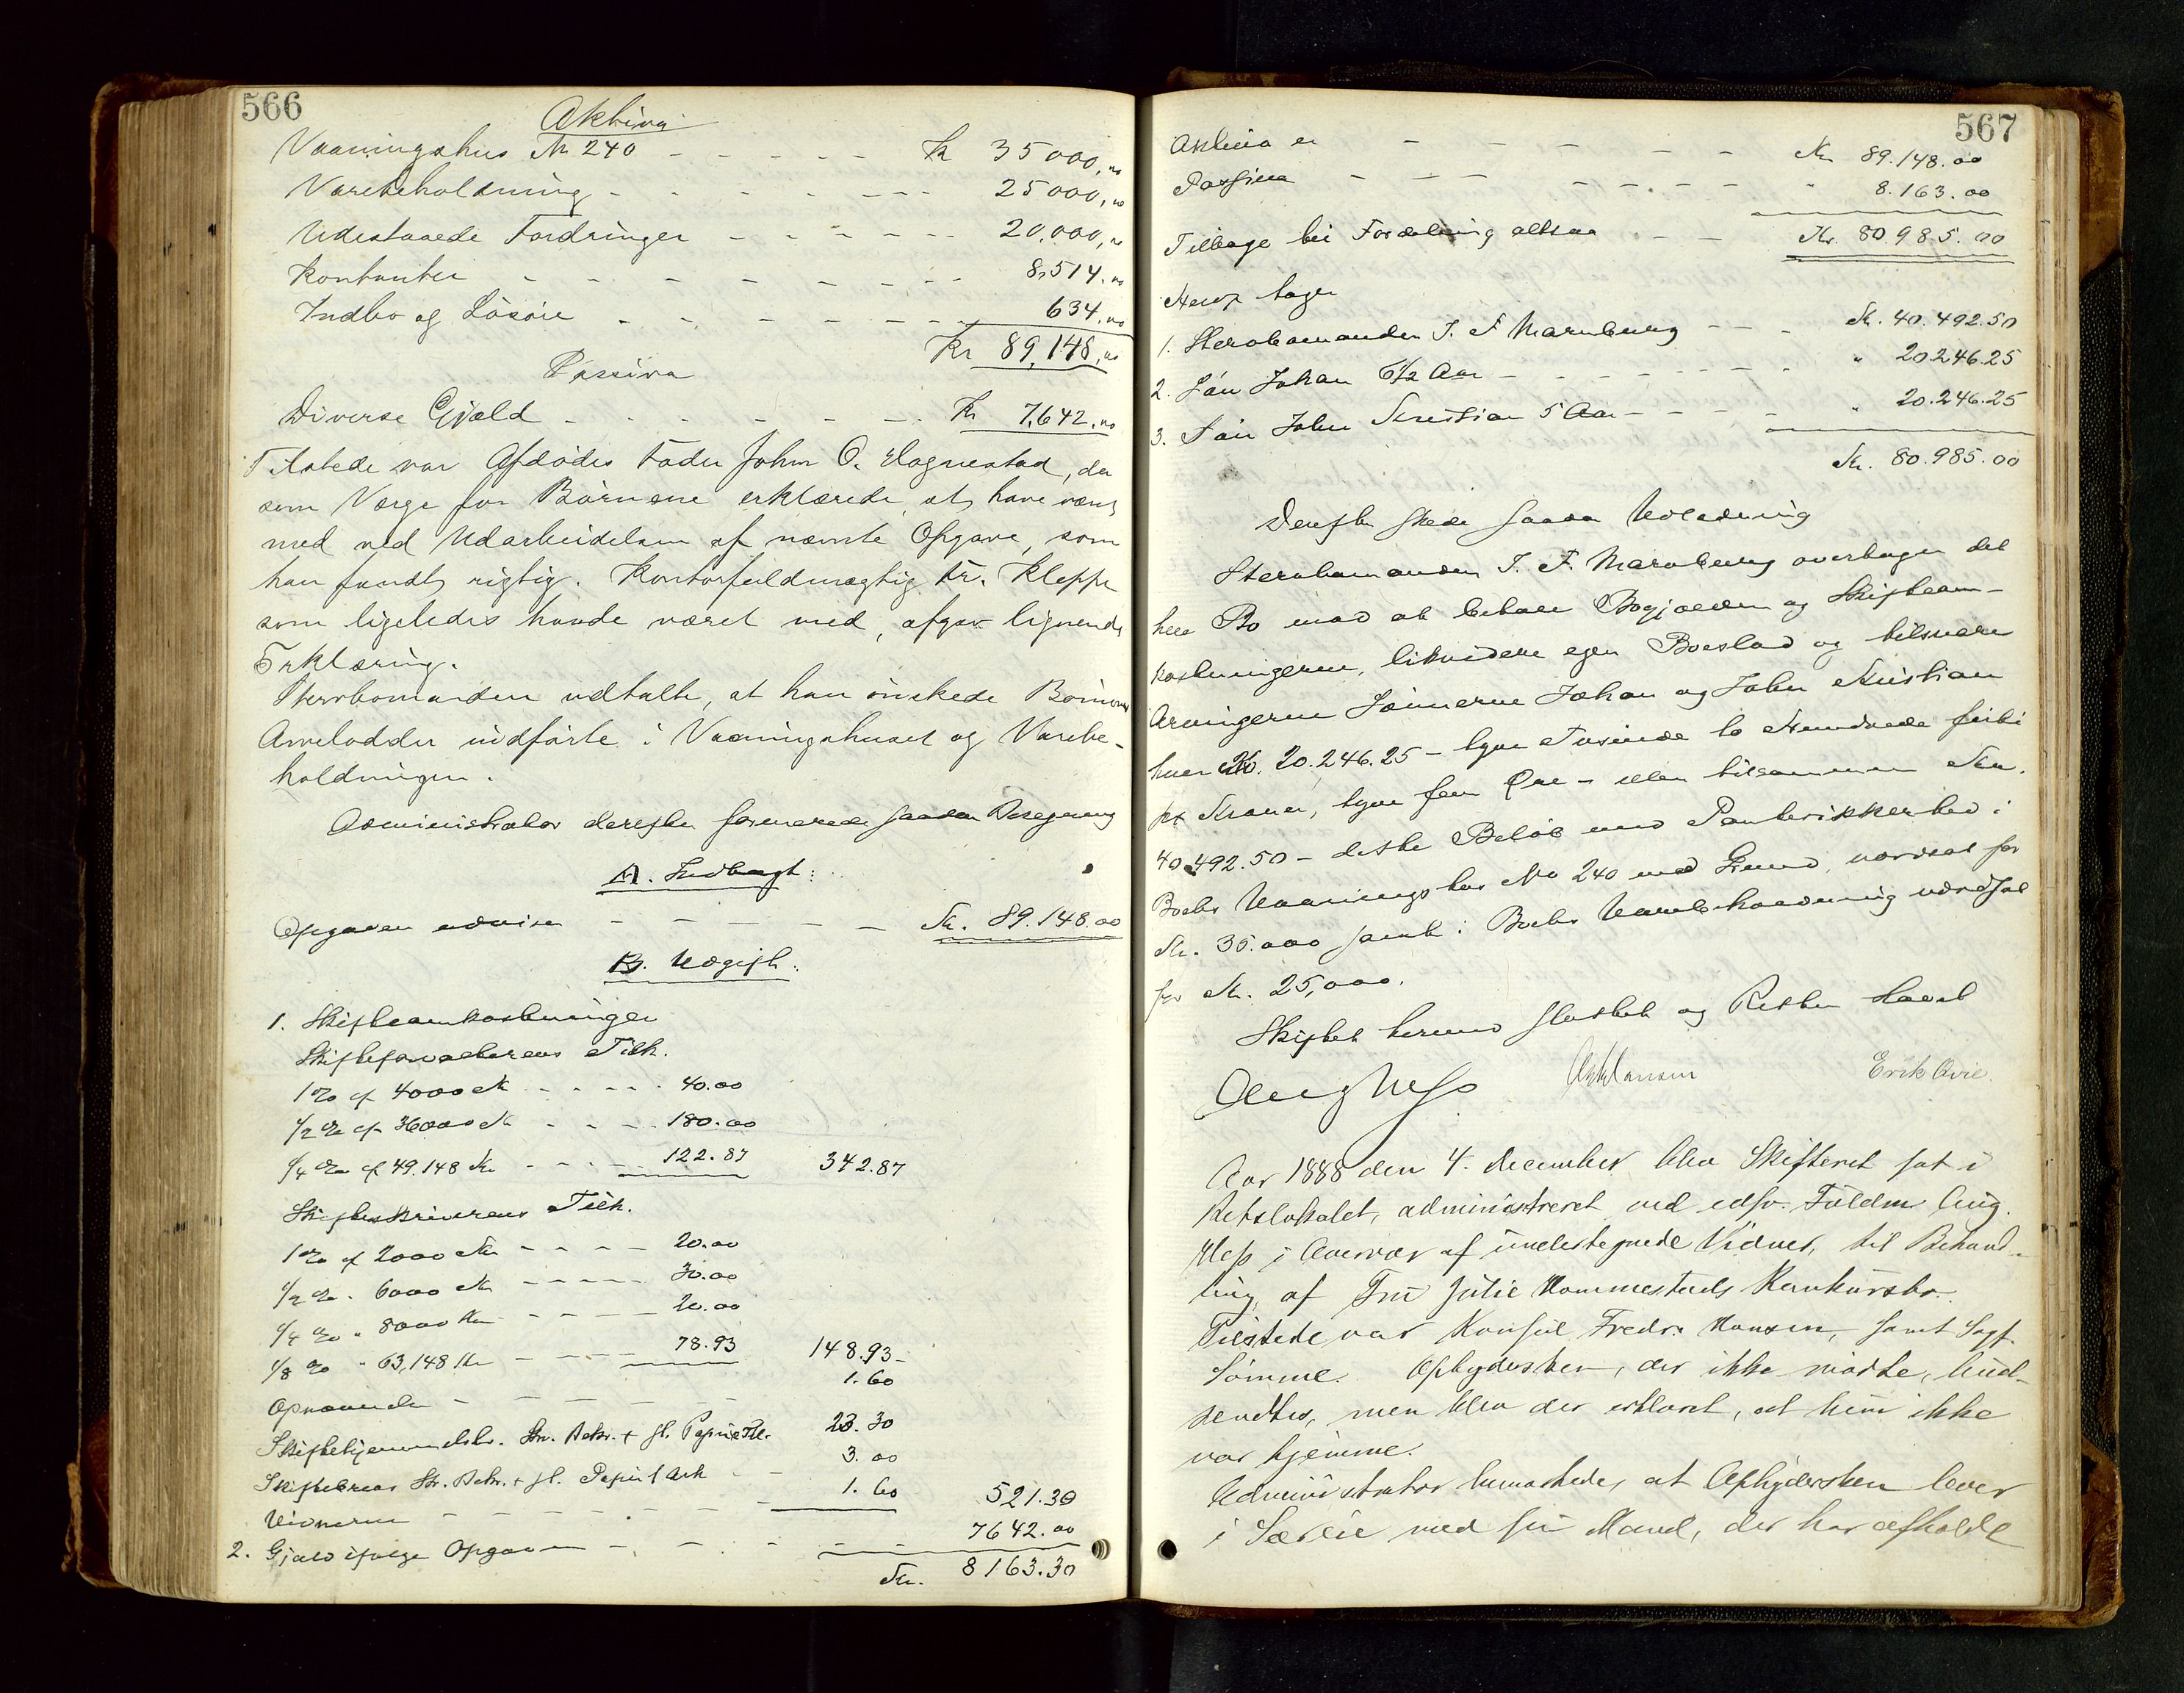 566
Aktiva
Vaaningshus No 240 - - - - - Kr 35000,00
Varebeholdning - - - - - - 25000,00
Udestaaede Fordringer - - - - - 20,000,00
Kontanter - - - - - - - 8,514.00
Indbo og Lösöre - - - - - - 634.00
Kr 89,148,00
Passiva
Diverse Gjæld - - - - - Kr 7,642.00
Tilstede var Afdödes Fader John O. Hognestad, der
som Værge for Börnene erklærede, at have været
med ved Udarbeidelsen af nævnte Opgave, som
han fandt rigtig. Kontorfuldmægtig Fr. Kleppe
som ligeledes havde været med, afgav lignende
Erklæring.
Sterbomanden udtalte, at han önskede Börnenes
Arvelodder indförte i Vaaningshuset og Varebe-
holdningen.
Administrator derefter formerede saadan Beregning
A. Indtægt:
Opgaven udviser - - - - - Kr. 89.148.00
B. Udgift:
1. Skifteomkostninger
Skifteforvalterens Tilk.
1 % af 4000 Kr - - - - 40.00
1/2 % af 36000 Kr - - - 180.00
1/4 % af 49.148 Kr - - - 122.87 342.87
Skifteskriverens Tilk.
1 % af 2000 Kr - - - - 20.00
1/2 % " 6000 Kr - - - - 30.00
1/4 % " 8000 Kr - - - - 20.00
1/8 % " 63,148 Kr - - - 78.93 148.93
Opnævnelse - - - - - 1.60
St. Rekv. + gl. Papir 23.30
Skiftebrev St. Rekv. + gl. Papir 1 Ark - - 3.00
Vidnerne - - - - - 1.60 521.30
2. Gjæld ifølge Opgaven - - - - - 7642.00
Kr. 8163.30
567
Aktiva er - - - - - - Kr 89.148.00
Passiva - - - - - - - " 8.163.00
Tilbage til Fordeling altsaa - - - Kr. 80.985.00
Heraf tager
1. Sterbomanden J. F. Marnburg - - - Kr. 40.492.50
2. Sön Johan 6 1/2 Aar - - - - - - " 20.246.25
3. Sön John Kristian 5 Aar - - - - " 20.246.25
Kr. 80.985.00
Derefter skede saadan Udlodning
Sterbomanden J. F. Marnburg overtager det
hele Bo mod at betale Bogjælden og Skifteom-
kostningerne, likvidere egen Boeslod og tilsvare
Arvingerne Sönnerne Johan og John Kristian
hver Kr. 20.246.25 - tyve Tusinde to Hundrede firti
sex Kroner, tyve fem Øre - eller tilsammen Kr.
40.492.50 - dette Belöb med Pantesikkerhed i
Boets Vaaningshus No 240 med Grund, værdsat for
Kr. 35.000 samt i Boets Varebeholdning værdsat
for Kr. 25,000.
Skiftet hermed sluttet og Retten hævet
Aug Hess Erik Qvie.
Aar 1888 den 4. December blev Skifteret sat i
Retslokalet, administreret ved edsv. Fuldm. Aug.
Hess i Overvær af undertegnede Vidner, til Behand-
ling af Fru Julie Hommestads Konkursbo.
Tilstede var Konsul Fredr. Hansen, samt Sagf.
Sömme. Opbydersken, der ikke mødte, bud-
sendtes, men blev der erklæret, at hun ikke
var hjemme.
Administrator bemærkede, at Opbydersken lever
i Særeie med sin Mand, der har afholdt